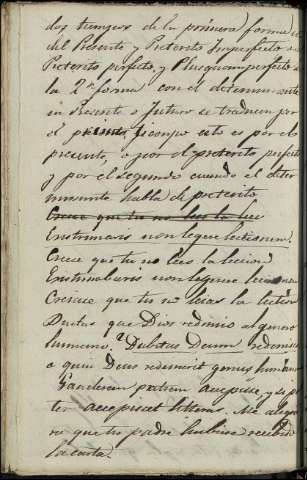 dos tiempos de la primera forma
del Presente y Preterito Imperfecto
Preterito perfecto, y Plusquamperfecto
la 2ª forma con el determinante
en Presente o Futuro se traducen por
el primer tiempo esto es por el
presente, o por el preterito perfecto
y por el segundo cuando el deter
minante habla de preterito
Crees que tu no lees la lec
Existimaris non legere lectionem
Crees que tu no lees la leccion
Existimabaris non legere lectionem
Creias que tu no leias la leccion
Dudas que Dios redimio al genero
humano? Dubitas Deum redemisse
o quin Deus redemerit genus humanum
Gaudeam patrem accepisse, y si pa
ter accepisset litteras. Me alegra
ra que tu padre hubiese recibido
la carta.